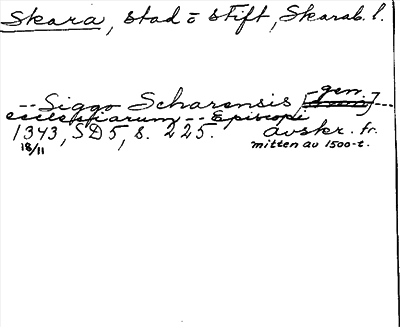 Skara, stad o stift, Skarab. l.
gen.
-- Siggo Scharensis [ ] ---
ecclesiarum -- Episcopi
1343, SD 5, s. 225. avskr. fr.
18/11 mitten av 1500-t.